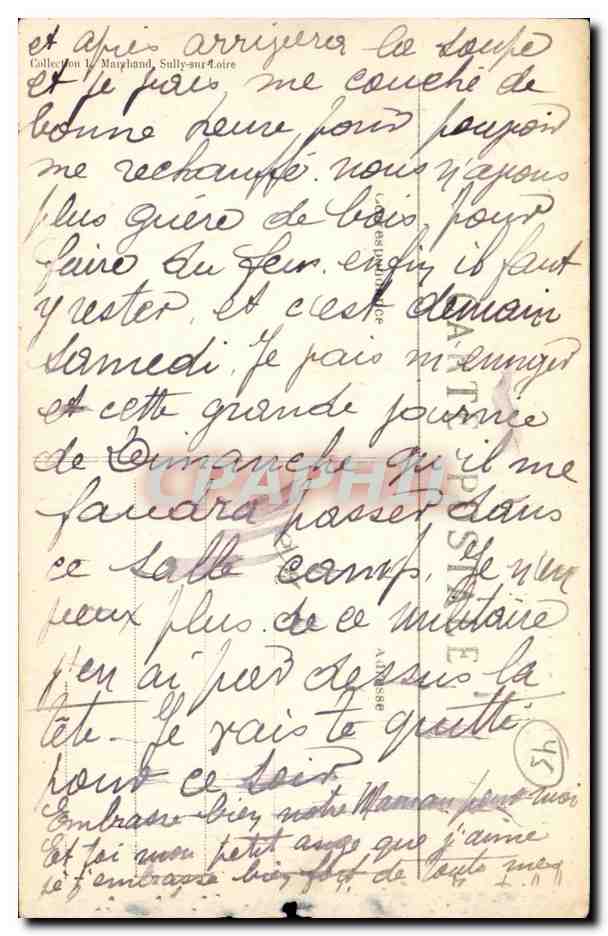 et après arrivera la soupe
Collection L. Marchand, Sully-sur-Loire
et je vais me couché de
bonne heure pour pouvoir
me rechauffé. nous n'avons
plus guére de bois pour
faire du feu. enfin il faut
y rester, et c'est demain
samedi. Je vais m'ennuyer
et cette grande journée
de Dimanche qu'il me
faudra passer dans
ce salle camp. Je n'en
peux plus de ce militaire
j'en ai par dessus la
tête - Je vais te quitté
pour ce soir
Embrasse bien notre Maman pour moi
Et toi mon petit ange que j'aime
je t'embrasse bien fort de toute
CARTE POSTALE
Correspondance
Adresse
45
CPAPHIL